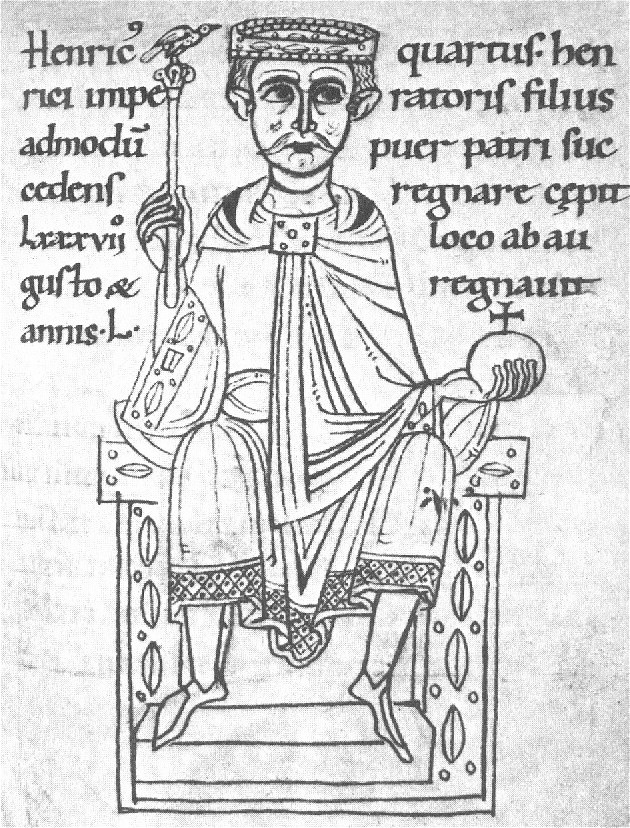 Henric⁹ quartus hen
rici impe ratoris filius
admodū puer patri suc
cedens regnare cępit
lxxxvij° loco ab au
gusto & regnauit
annis·L·